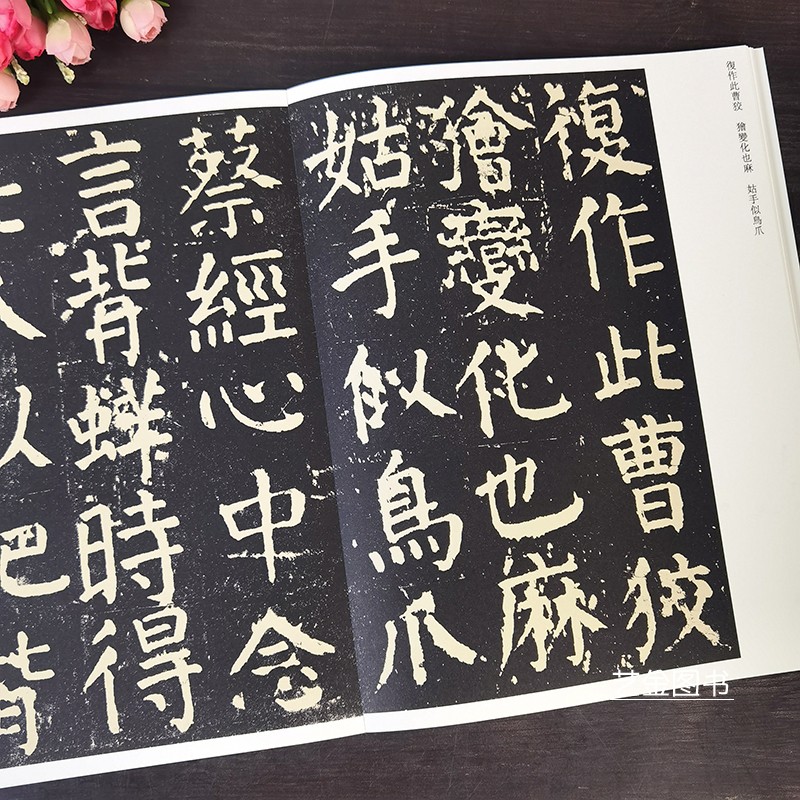 復作此曹狡 獪變化也麻 姑手似鳥爪
復作此曹狡
獪變化也麻
姑手似鳥爪
蔡經心中念
言背蛘時得
图书